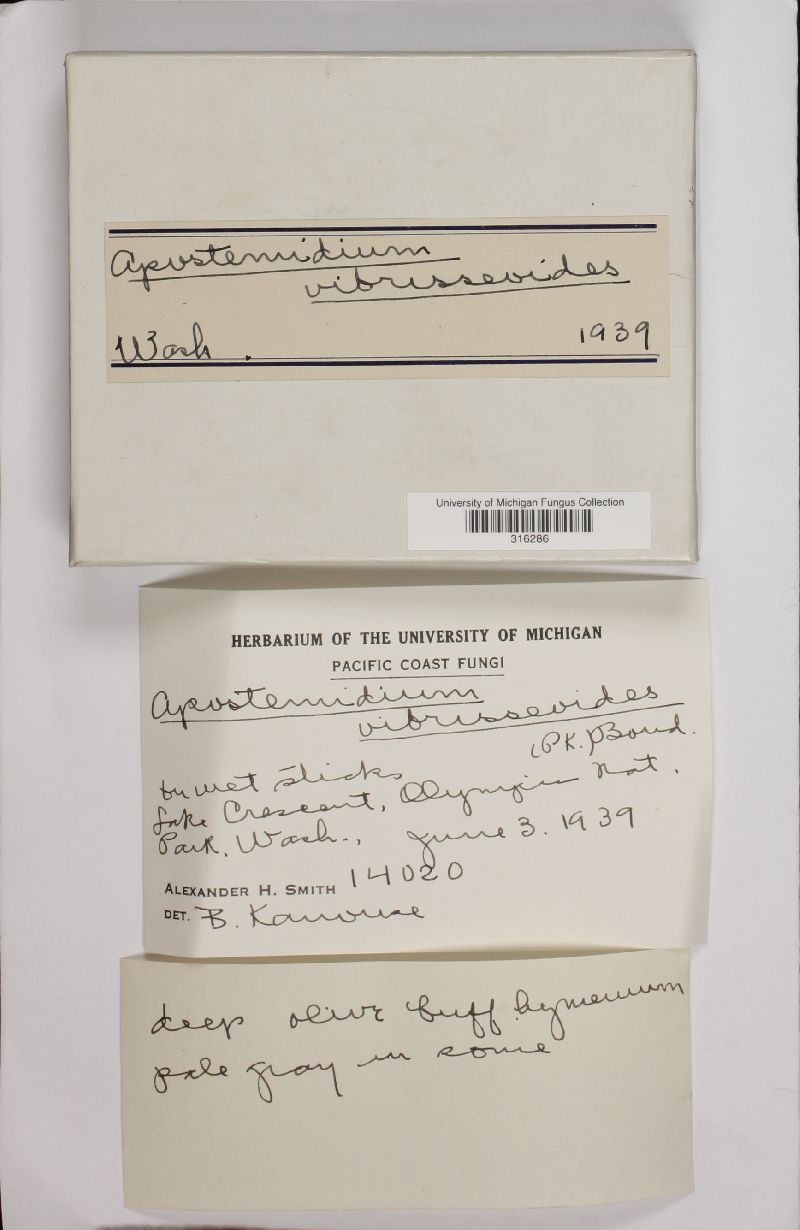 Apostemidium
vibrisseoides
Wash. 1939
University of Michigan Fungus Collection
316286
HERBARIUM OF THE UNIVERSITY OF MICHIGAN
PACIFIC COAST FUNGI
Apostemidium
vibrisseoides
(PK.) Boud.
On wet sticks
Lake Crescent, Olympic Nat.
Park, Wash., June 3. 1939
ALEXANDER H. SMITH 14020
DET. B. Kanouse
deep olive buff hymenium
pale gray in some